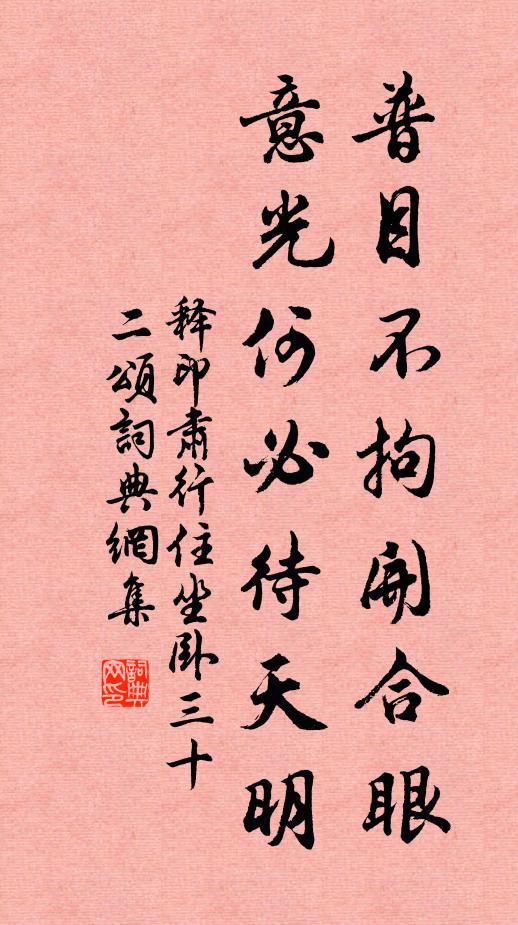 普目不拘開合眼
意光何必待天明
释印肃行住坐卧三十
二頌詞典網集
詞典
网印